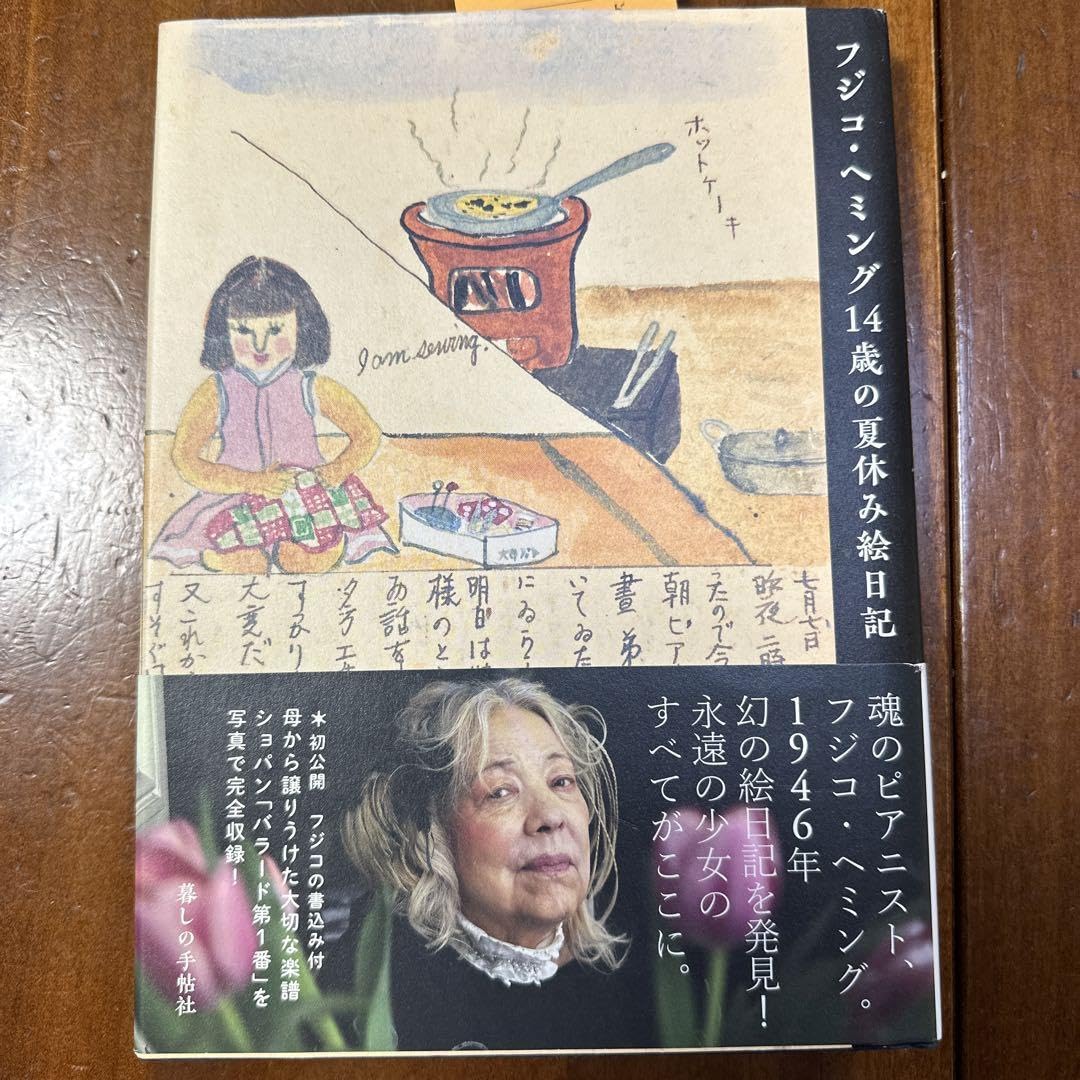 フジコ・ヘミング14歳の夏休み絵日記
ホットケーキ
I am sewing.
七月七日
昨夜二時
えたので今
朝ピア
晝 弟
いてゐた
にゐらし
明日は
様のと
お話を
夕方工
すつかり
大変だ
又これか
すそぐ
魂のピアニスト、
フジコ・ヘミング。
1946年
幻の絵日記を発見！
永遠の少女の
すべてがここに。
＊初公開 フジコの書込み付
母から譲りうけた大切な楽譜
ショパン「バラード第1番」を
写真で完全収録！
暮しの手帖社